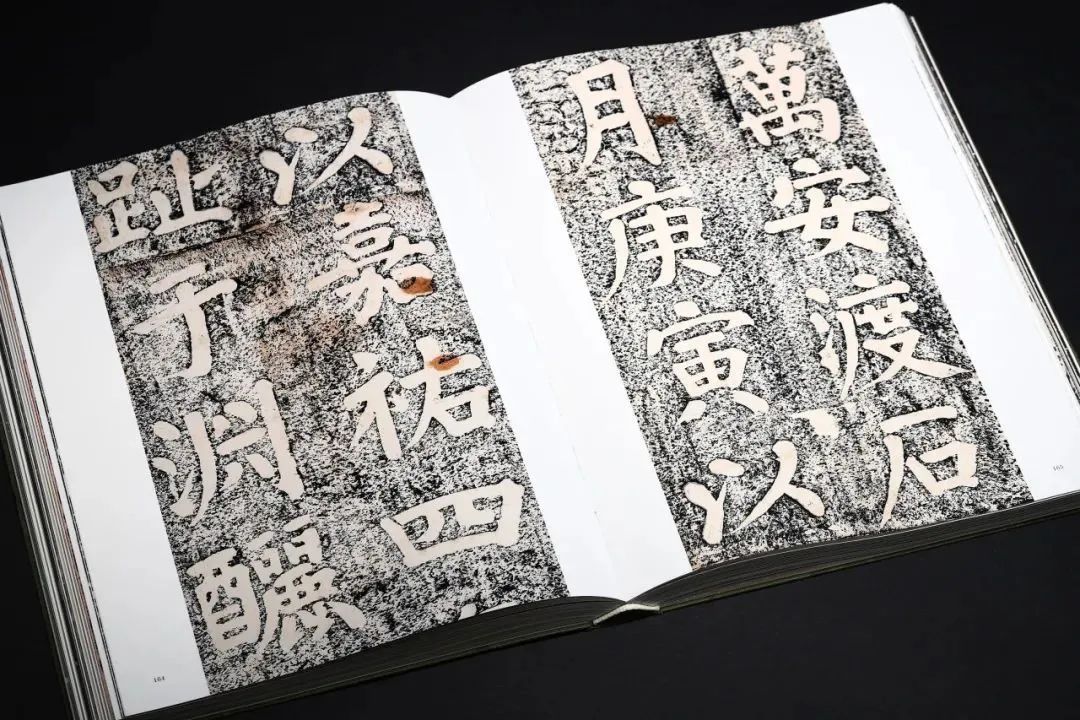 萬安渡石
月庚寅以
165
以嘉祐四
趾于淵釃
164